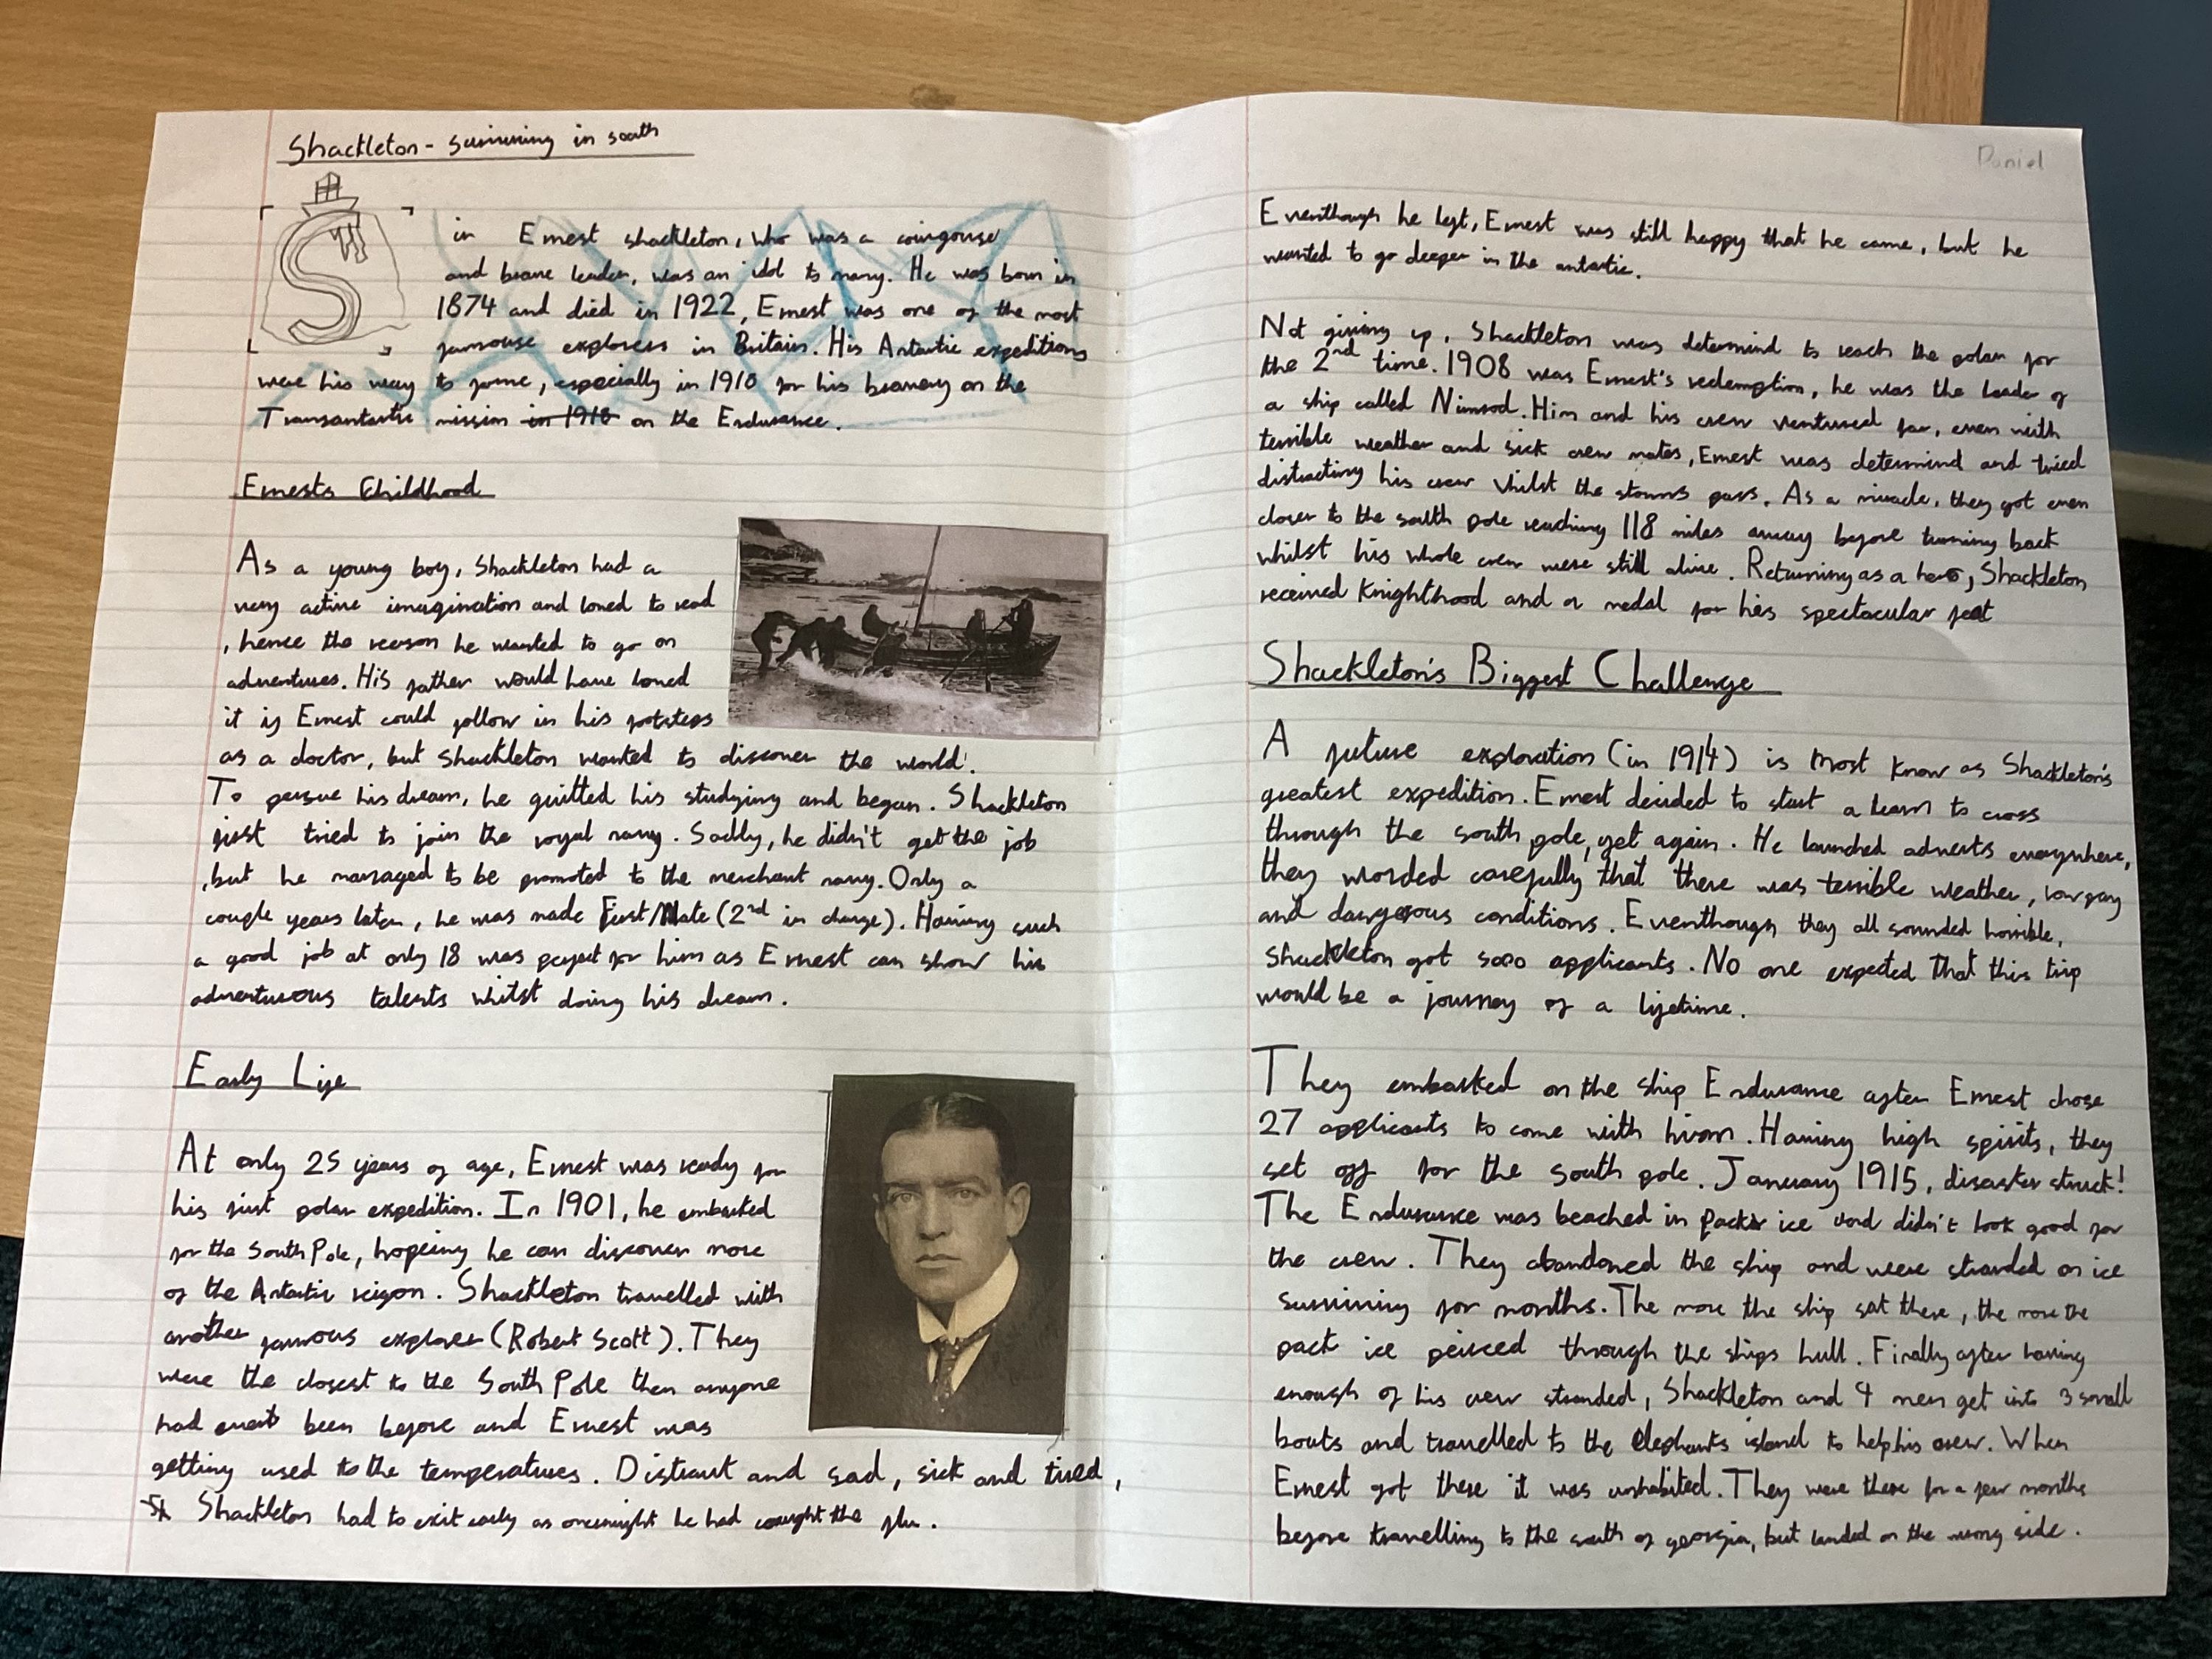 Shackleton - surviving in south
S
in Ernest shackleton, who was a courgouse
and brave leader, was an idol to many. He was born in
1874 and died in 1922, Ernest was one of the most
famouse explorers in Britain. His Antartic expeditions
were his way to fame, especially in 1918 for his bravery on the
Transantartic mission in 1918 on the Endurance.
Ernests Childhood
As a young boy, Shackleton had a
very active imagination and loved to read
, hence the reason he wanted to go on
adventures. His father would have loved
it if Ernest could follow in his footsteps
as a doctor, but Shackleton wanted to discover the world.
To persue his dream, he quitted his studying and began. Shackleton
first tried to join the royal navy. Sadly, he didn't get the job
, but he managed to be promoted to the merchant navy. Only a
couple years later, he was made First/Mate (2nd in charge). Having such
a good job at only 18 was perfect for him as Ernest can show his
adventurous talents whilst doing his dream.
Early Life
At only 25 years of age, Ernest was ready for
his first polar expedition. In 1901, he embarked
for the South Pole, hopeing he can discover more
of the Antartic reigon. Shackleton travelled with
another famous explorer (Robert Scott). They
were the closest to the South Pole then anyone
had ever been before and Ernest was
getting used to the temperatures. Distraut and sad, sick and tired,
Shackleton had to exit early as overnight he had caught the flu.
Daniel
Eventhough he left, Ernest was still happy that he came, but he
wanted to go deeper in the antartic.
Not giving up, Shackleton was determind to reach the polar for
the 2nd time. 1908 was Ernest's redemption, he was the leader of
a ship called Nimrod. Him and his crew ventured far, even with
terrible weather and sick crew mates, Ernest was determind and tried
distracting his crew whilst the storms pass. As a miracle, they got even
closer to the south pole reaching 118 miles away before turning back
whilst his whole crew were still alive. Returning as a hero, Shackleton
received Knighthood and a medal for his spectacular feat
Shackleton's Biggest Challenge
A future exploration (in 1914) is most know as Shackleton's
greatest expedition. Ernest decided to start a team to cross
through the south pole, yet again. He launched adverts everywhere,
they worded carefully that there was terrible weather, low pay
and dangerous conditions. Eventhough they all sounded horrible,
Shackleton got 5000 applicants. No one expected that this trip
would be a journey of a lifetime.
They embarked on the ship Endurance after Ernest chose
27 applicants to come with him. Having high spirits, they
set off for the South pole. January 1915, disaster struck!
The Endurance was beached in pack ice and didn't look good for
the crew. They abandoned the ship and were stranded on ice
surviving for months. The more the ship sat there, the more the
pack ice peirced through the ships hull. Finally after having
enough of his crew stranded, Shackleton and 4 men get into 3 small
boats and travelled to the elephants island to help his crew. When
Ernest got there it was unhabited. They were there for a few months
before travelling to the south of georgia, but landed on the wrong side.